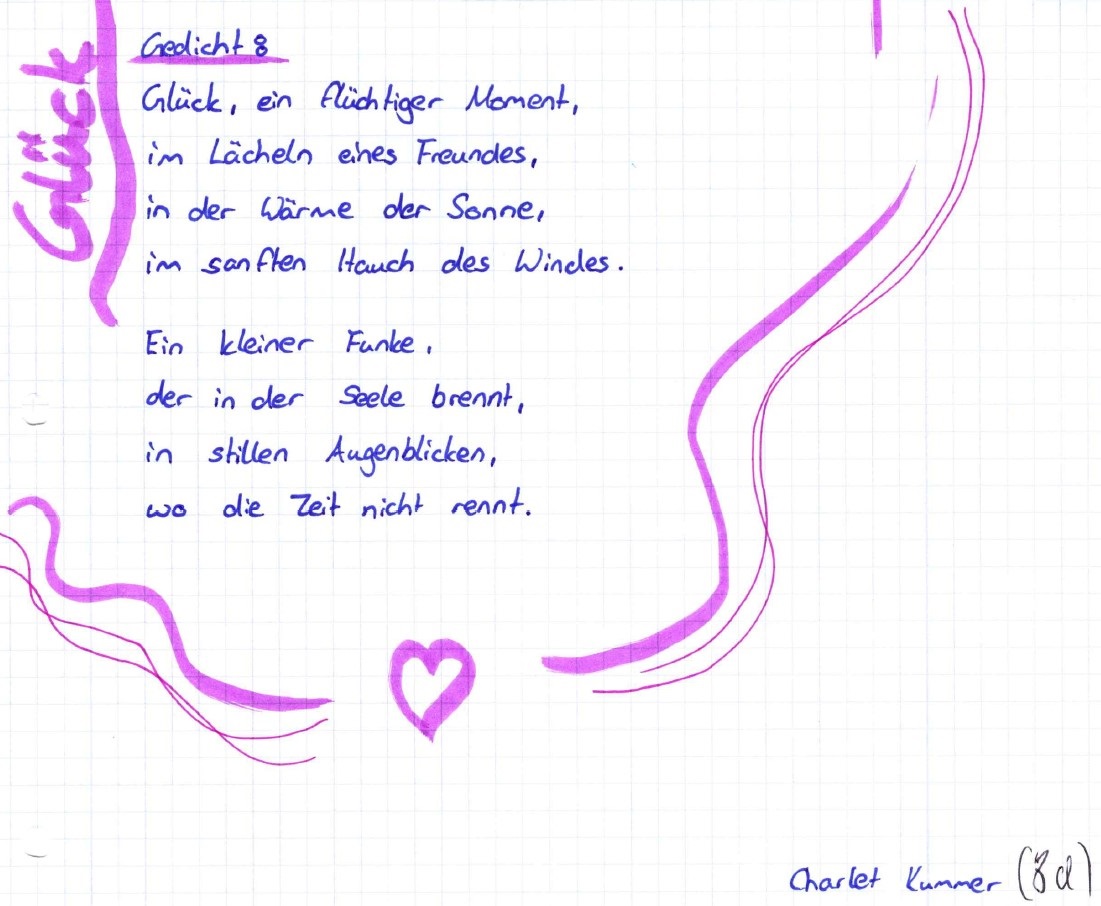 Glück
Gedicht 8
Glück, ein flüchtiger Moment,
im Lächeln eines Freundes,
in der Wärme der Sonne,
im sanften Hauch des Windes.
Ein kleiner Funke,
der in der Seele brennt,
in stillen Augenblicken,
wo die Zeit nicht rennt.
Charlet Kummer (8d)